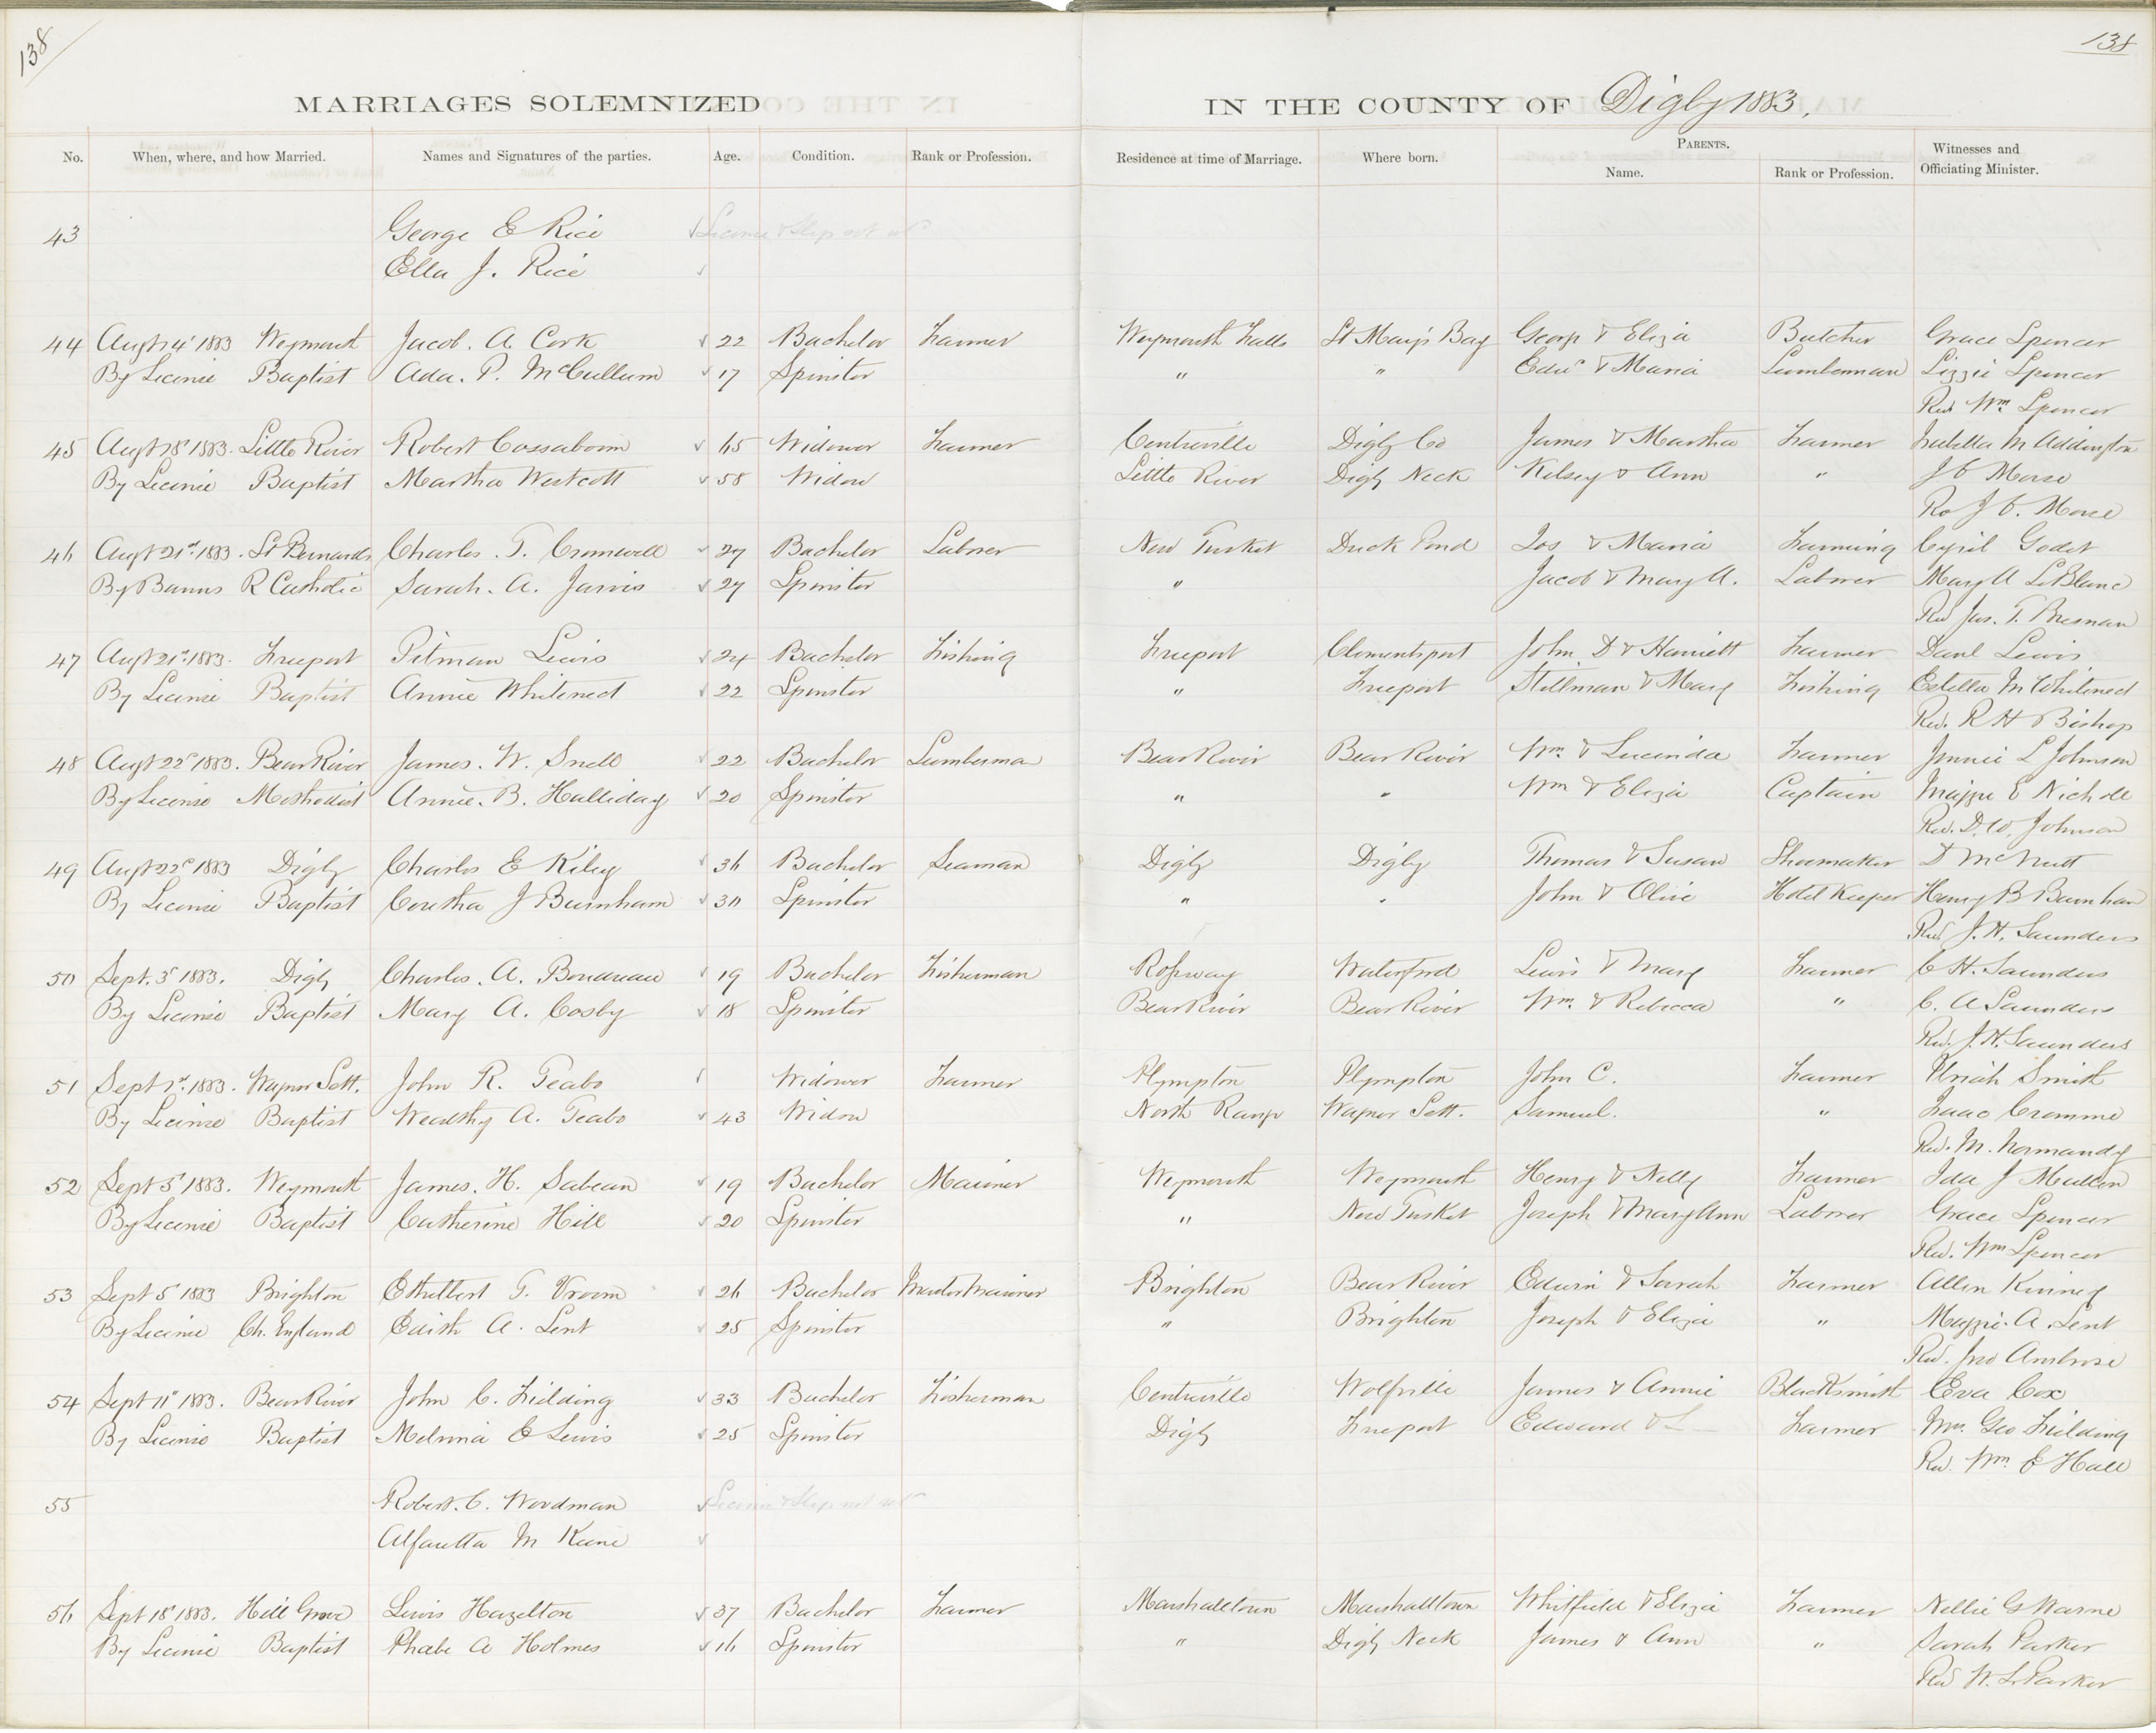 138
138
MARRIAGES SOLEMNIZED IN THE COUNTY OF Digby 1883.
No. When, where, and how Married. Names and Signatures of the parties. Age. Condition. Rank or Profession. Residence at time of Marriage. Where born. PARENTS. Name. Rank or Profession. Witnesses and Officiating Minister.
43 George E Rice License & Slip not
Ella J. Rice
44 Augt 14 1883 Weymouth Jacob. A Cork 22 Bachelor Farmer Weymouth Falls St Mary's Bay George & Eliza Butcher Grace Spencer
By License Baptist Ada. P. McCullum 17 Spinster " " Edwd & Maria Lumberman Lizzie Spencer
Rev Wm Spencer
45 Augt 18 1883. Little River Robert Cossaboom 65 Widower Farmer Centreville Digby Co James & Martha Farmer Isabella M Addington
By License Baptist Martha Westcott 58 Widow Little River Digby Neck Kelsey & Ann " J C Morse
J C. Morse
46 Augt 21st 1883. St Bernards Charles. T. Cromwell 27 Bachelor Laborer New Tusket Duck Pond Jos & Maria Farming Cyril Godet
By Banns R Catholic Sarah. A. Jarvis 27 Spinster " Jacob & Mary A. Laborer Mary A LeBlanc
Rev Jas. T. Bresnan
47 Augt 21st 1883. Freeport Pitman Lewis 24 Bachelor Fishing Freeport Clementsport John D & Harriett Farmer Danl Lewis
By License Baptist Annie Whitenect 22 Spinster " Freeport Stillman & Mary Fishing Estella M Whitenect
Rev. R H Bishop
48 Augt 22d 1883. Bear River James. W. Snell 22 Bachelor Lumberman Bear River Bear River Wm & Lucinda Farmer Jennie L Johnson
By License Methodist Annie. B. Halliday 20 Spinster " " Wm & Eliza Captain Maggie E Nicholl
Rev. D. W. Johnson
49 Augt 22d 1883 Digby Charles E Kiley 36 Bachelor Seaman Digby Digby Thomas & Susan Shoemaker D McNutt
By License Baptist Coretha J Burnham 30 Spinster " " John & Olive Hotel Keeper Henry B Burnham
Rev J. H. Saunders
50 Sept. 3d 1883. Digby Charles. A. Boudreau 19 Bachelor Fisherman Rossway Waterford Lewis & Mary Farmer C H. Saunders
By License Baptist Mary A. Cosby 18 Spinster Bear River Bear River Wm. & Rebecca " C. A Saunders
Rev. J. H. Saunders
51 Sept 1st 1883. Wagner Sett. John R. Teabo Widower Farmer Plympton Plympton John C. Farmer Uriah Smith
By License Baptist Wealthy A. Teabo 43 Widow North Range Wagner Sett. Samuel. " Isaac Cromme
Rev. M. Normandy
52 Sept 5 1883. Weymouth James. H. Sabean 19 Bachelor Mariner Weymouth Weymouth Henry & Nelly Farmer Ida J Mullen
By License Baptist Catherine Hill 20 Spinster " New Tusket Joseph & Mary Ann Laborer Grace Spencer
Rev. Wm Spencer
53 Sept 5 1883 Brighton Ethelbert T. Vroom 26 Bachelor Master Mariner Brighton Bear River Edwin & Sarah Farmer Allen Kinney
By License Ch. England Edith A. Lent 25 Spinster " Brighton Joseph & Eliza " Maggie. A. Lent
Rev. Jno Ambrose
54 Sept 11 1883. Bear River John C. Fielding 33 Bachelor Fisherman Centreville Wolfville James & Annie Blacksmith Eva Cox
By License Baptist Melvina E Lewis 25 Spinster Digby Freeport Edward & L Farmer Mrs. Geo Fielding
Rev. Wm E Hall
55 Robert. C. Woodman License & Slip not
Alfaretta M Keene
56 Sept 18 1883. Hill Grove Lewis Hazelton 37 Bachelor Farmer Marshalltown Marshalltown Whitfield & Eliza Farmer Nellie G Warne
By License Baptist Phebe A Holmes 16 Spinster " Digby Neck James & Ann " Sarah Parker
Rev W. L. Parker